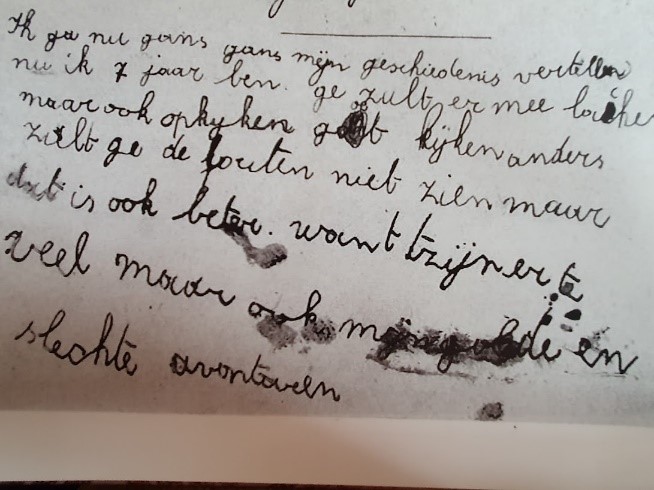 Ik ga nu gans gans mijn geschiedenis vertellen
nu ik 7 jaar ben. ge zult er mee lachen
maar ook opkyken kijken anders
zult ge de fouten niet zien maar
dat is ook beter. want tzijn er te
veel maar ook mijn goede en
slechte avontuuren